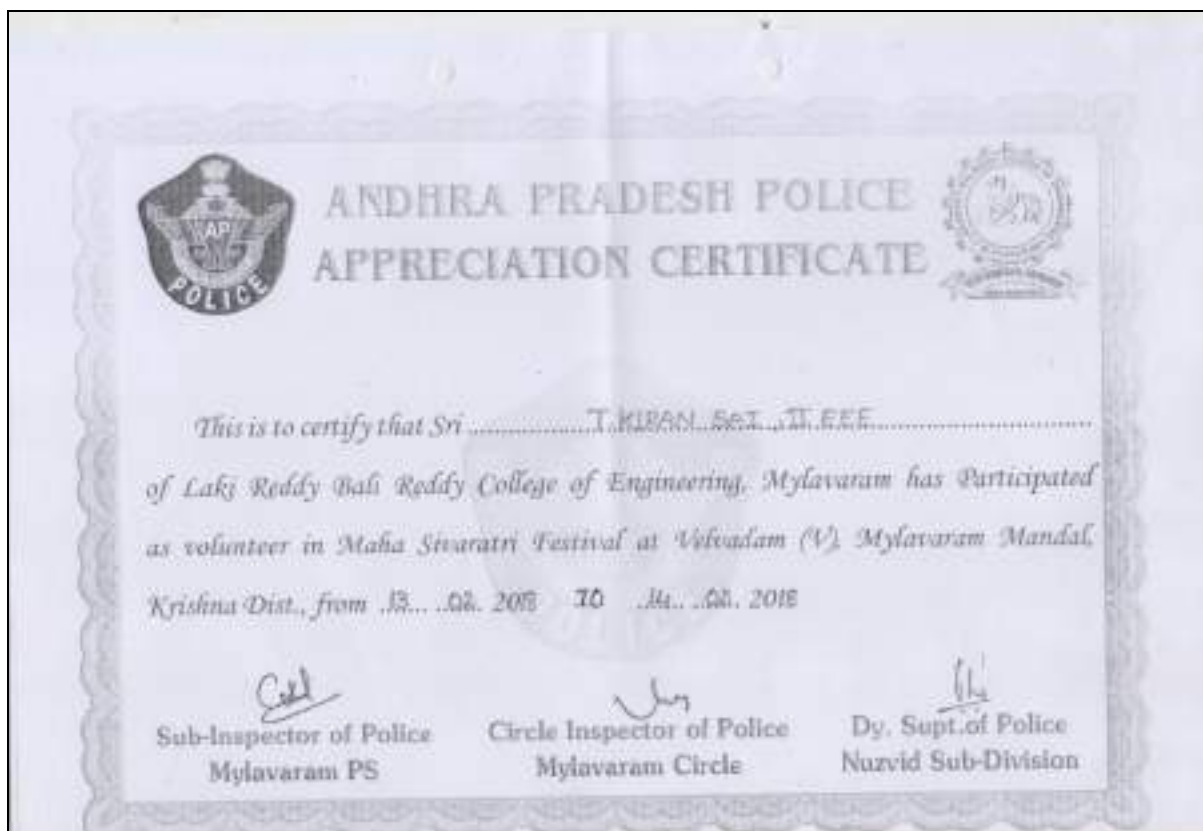 ANDHRA PRADESH POLICE
APPRECIATION CERTIFICATE
AP
POLICE
This is to certify that Sri ................T. KIRAN SAI, II EEE................
of Laki Reddy Bali Reddy College of Engineering, Mylavaram has Participated
as volunteer in Maha Sivaratri Festival at Velvadam (V), Mylavaram Mandal,
Krishna Dist., from .13... .02. 2018 TO .14.. .02. 2018
Sub-Inspector of Police
Mylavaram PS
Circle Inspector of Police
Mylavaram Circle
Dy. Supt.of Police
Nuzvid Sub-Division